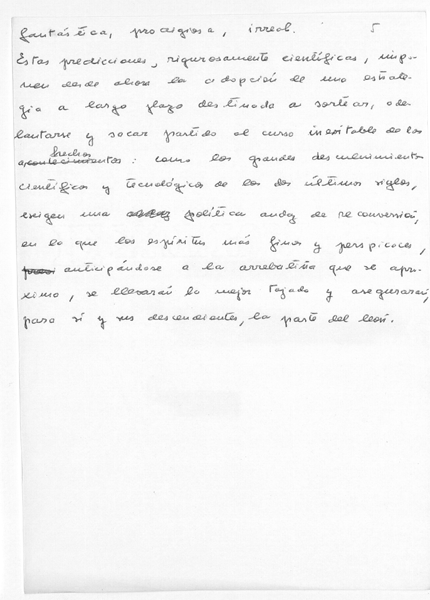 fantástica, prodigiosa, irreal. 5
Estas predicciones, rigurosamente científicas, impo-
nen desde ahora la adopción de una estrate-
gia a largo plazo destinada a sortear, ade-
lantarse y sacar partido al curso inevitable de los
hechos
acontecimientos: como los grandes descubrimientos
científicos y tecnológicos de los dos últimos siglos,
exigen una política audaz de reconversión,
en la que los espíritus más finos y perspicaces,
anticipándose a la arrebatiña que se apro-
xima, se llevarán la mejor tajada y asegurarán,
para sí y sus descendientes, la parte del león.